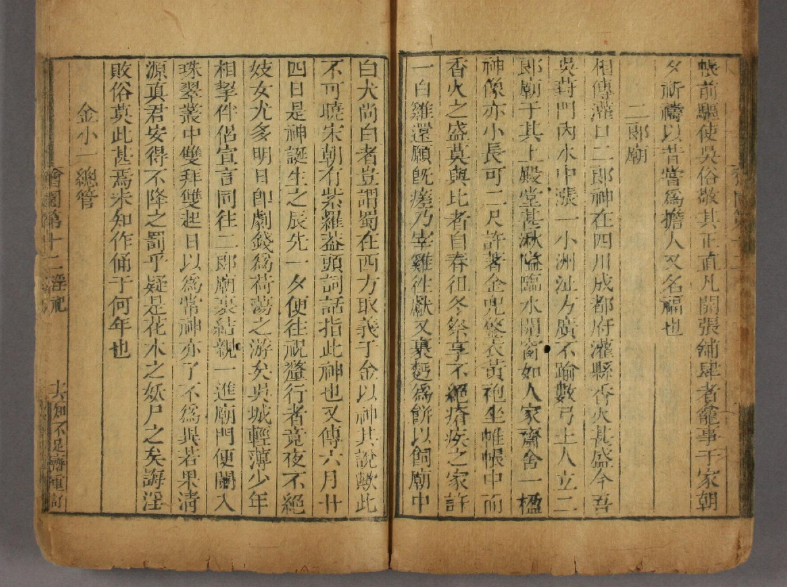 帳前驅使吳俗敬其正直凡開張舖肆者龕事于家朝
夕祈禱以昔嘗爲擔人又名福也
二郎廟
相傳灌口二郎神在四川成都府灌縣香火甚盛今吾
吳葑門內水中漲一小洲沚方廣不踰數弓土人立二
郎廟于其上殿堂甚湫隘臨水開窗如人家齋舍一楹
神像亦小長可二尺許著金兜鍪衣黃袍坐帷帳中而
香火之盛莫與比者自春徂冬祭享不絕瘡疾之家許
一白雞還願旣瘥乃宰雞徃獻又裹麪爲餅以飼廟中
白犬尚白者豈謂蜀在西方取義于金以神其說歟此
不可曉宋朝有紫羅葢頭詞話指此神也又傳六月廿
四日是神誕生之辰先一夕便往祝釐行者竟夜不絕
妓女尤多明日卽劇錢爲荷蕩之游矣吳城輕薄少年
相挈伴侶宣言同往二郎廟裏結親一進廟門便闌入
珠翠叢中雙拜雙起日以爲常神亦了不爲異若果淸
源真君安得不降之罰乎疑是花木之妖尸之矣誨淫
敗俗莫此甚焉未知作俑于何年也
金小一總管
獪園第十二 淫祀
知不足齋